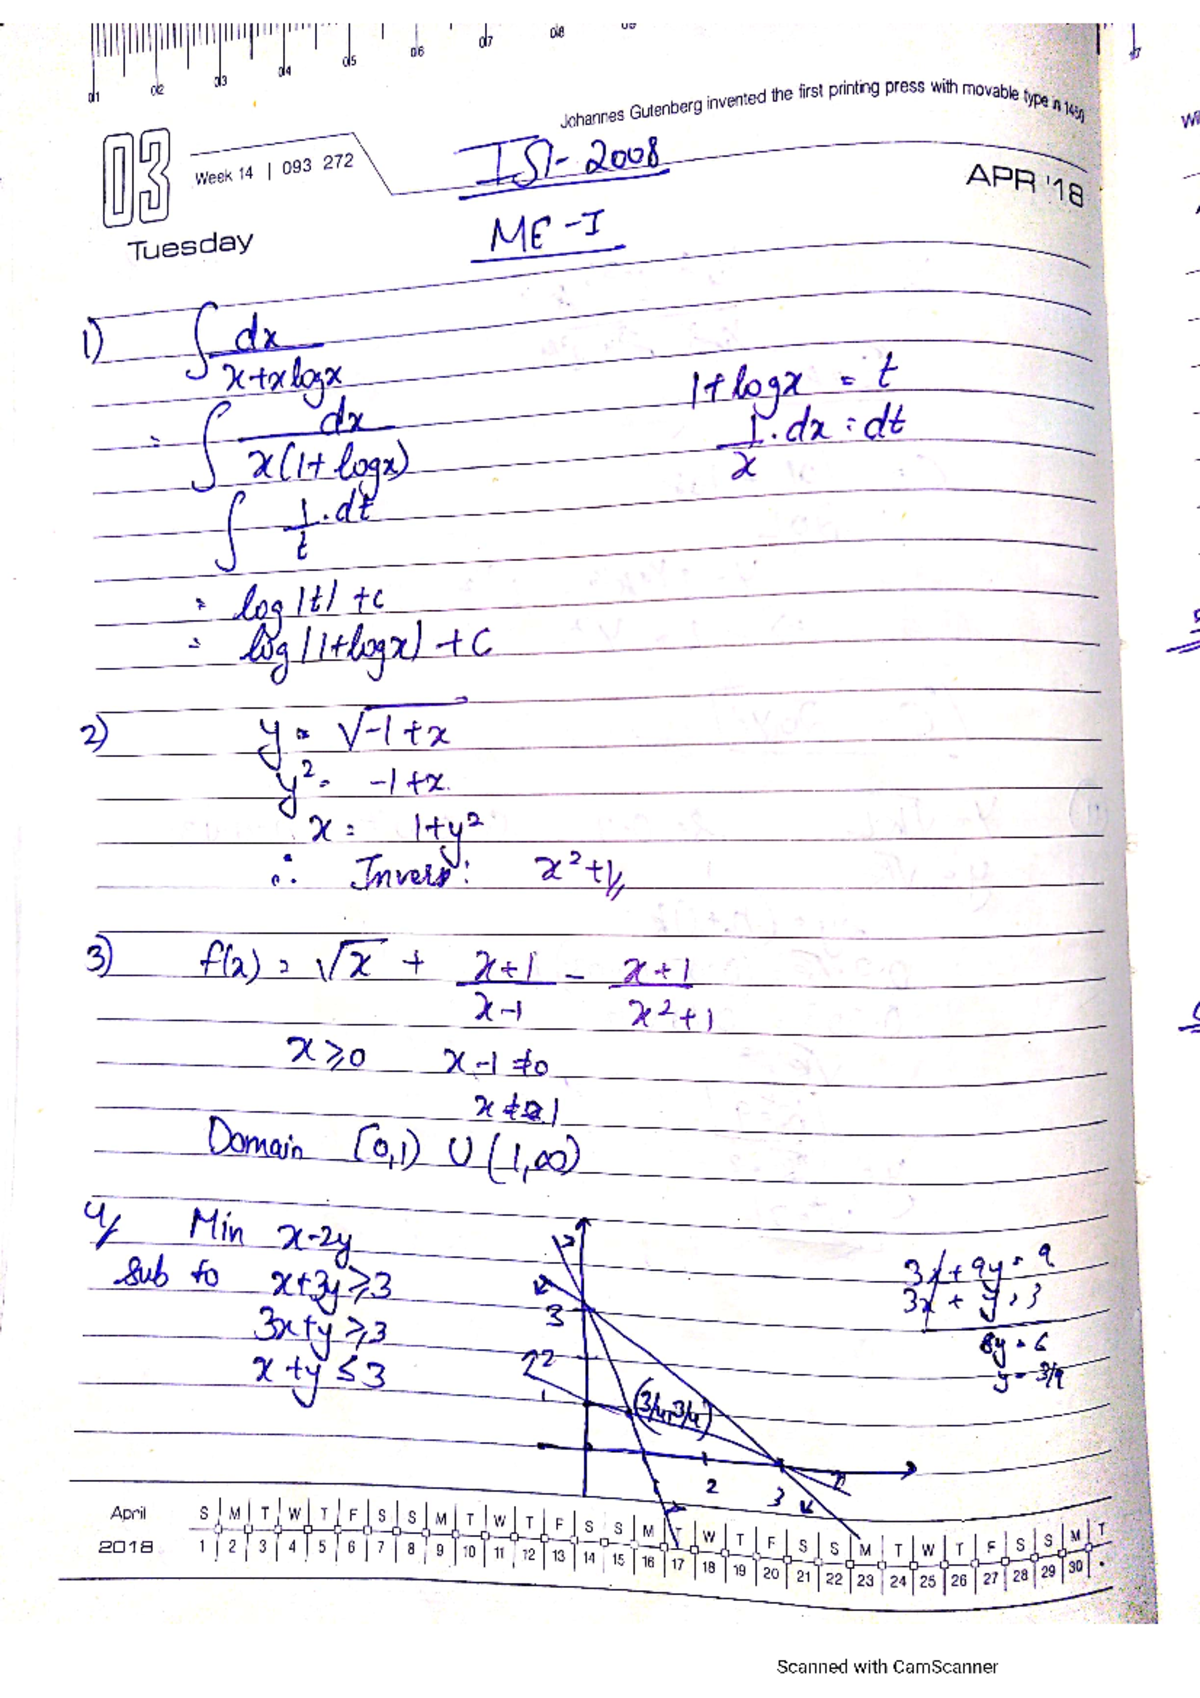 01 02 03 04 05 06 07 08 09
Johannes Gutenberg invented the first printing press with movable type in 1450
03
Week 14 | 093 272
Tuesday
ISI-2008
ME-I
APR '18
1) ∫ dx / x+xlogx
= ∫ dx / x(1+logx)
1+logx = t
1/x . dx = dt
∫ 1/t . dt
= log|t| + c
= log|1+logx| + C
2) y = √-1+x
y² = -1+x
x = 1+y²
∴ Invers: x²+1
3) f(x) = √x + x+1 / x-1 - x+1 / x²+1
x≥0 x-1≠0
x≠1
Domain [0,1) ∪ (1,∞)
4) Min x-2y
Sub to x+3y≥3
3x+y≥3
x+y≤3
3
2
1
(3/4,3/4)
2 3
3x+9y=9
3x+y=3
8y=6
y=3/4
April S M T W T F S S M T W T F S S M T W T F S S M T W T F S S M T
2018 1 2 3 4 5 6 7 8 9 10 11 12 13 14 15 16 17 18 19 20 21 22 23 24 25 26 27 28 29 30 •
Scanned with CamScanner